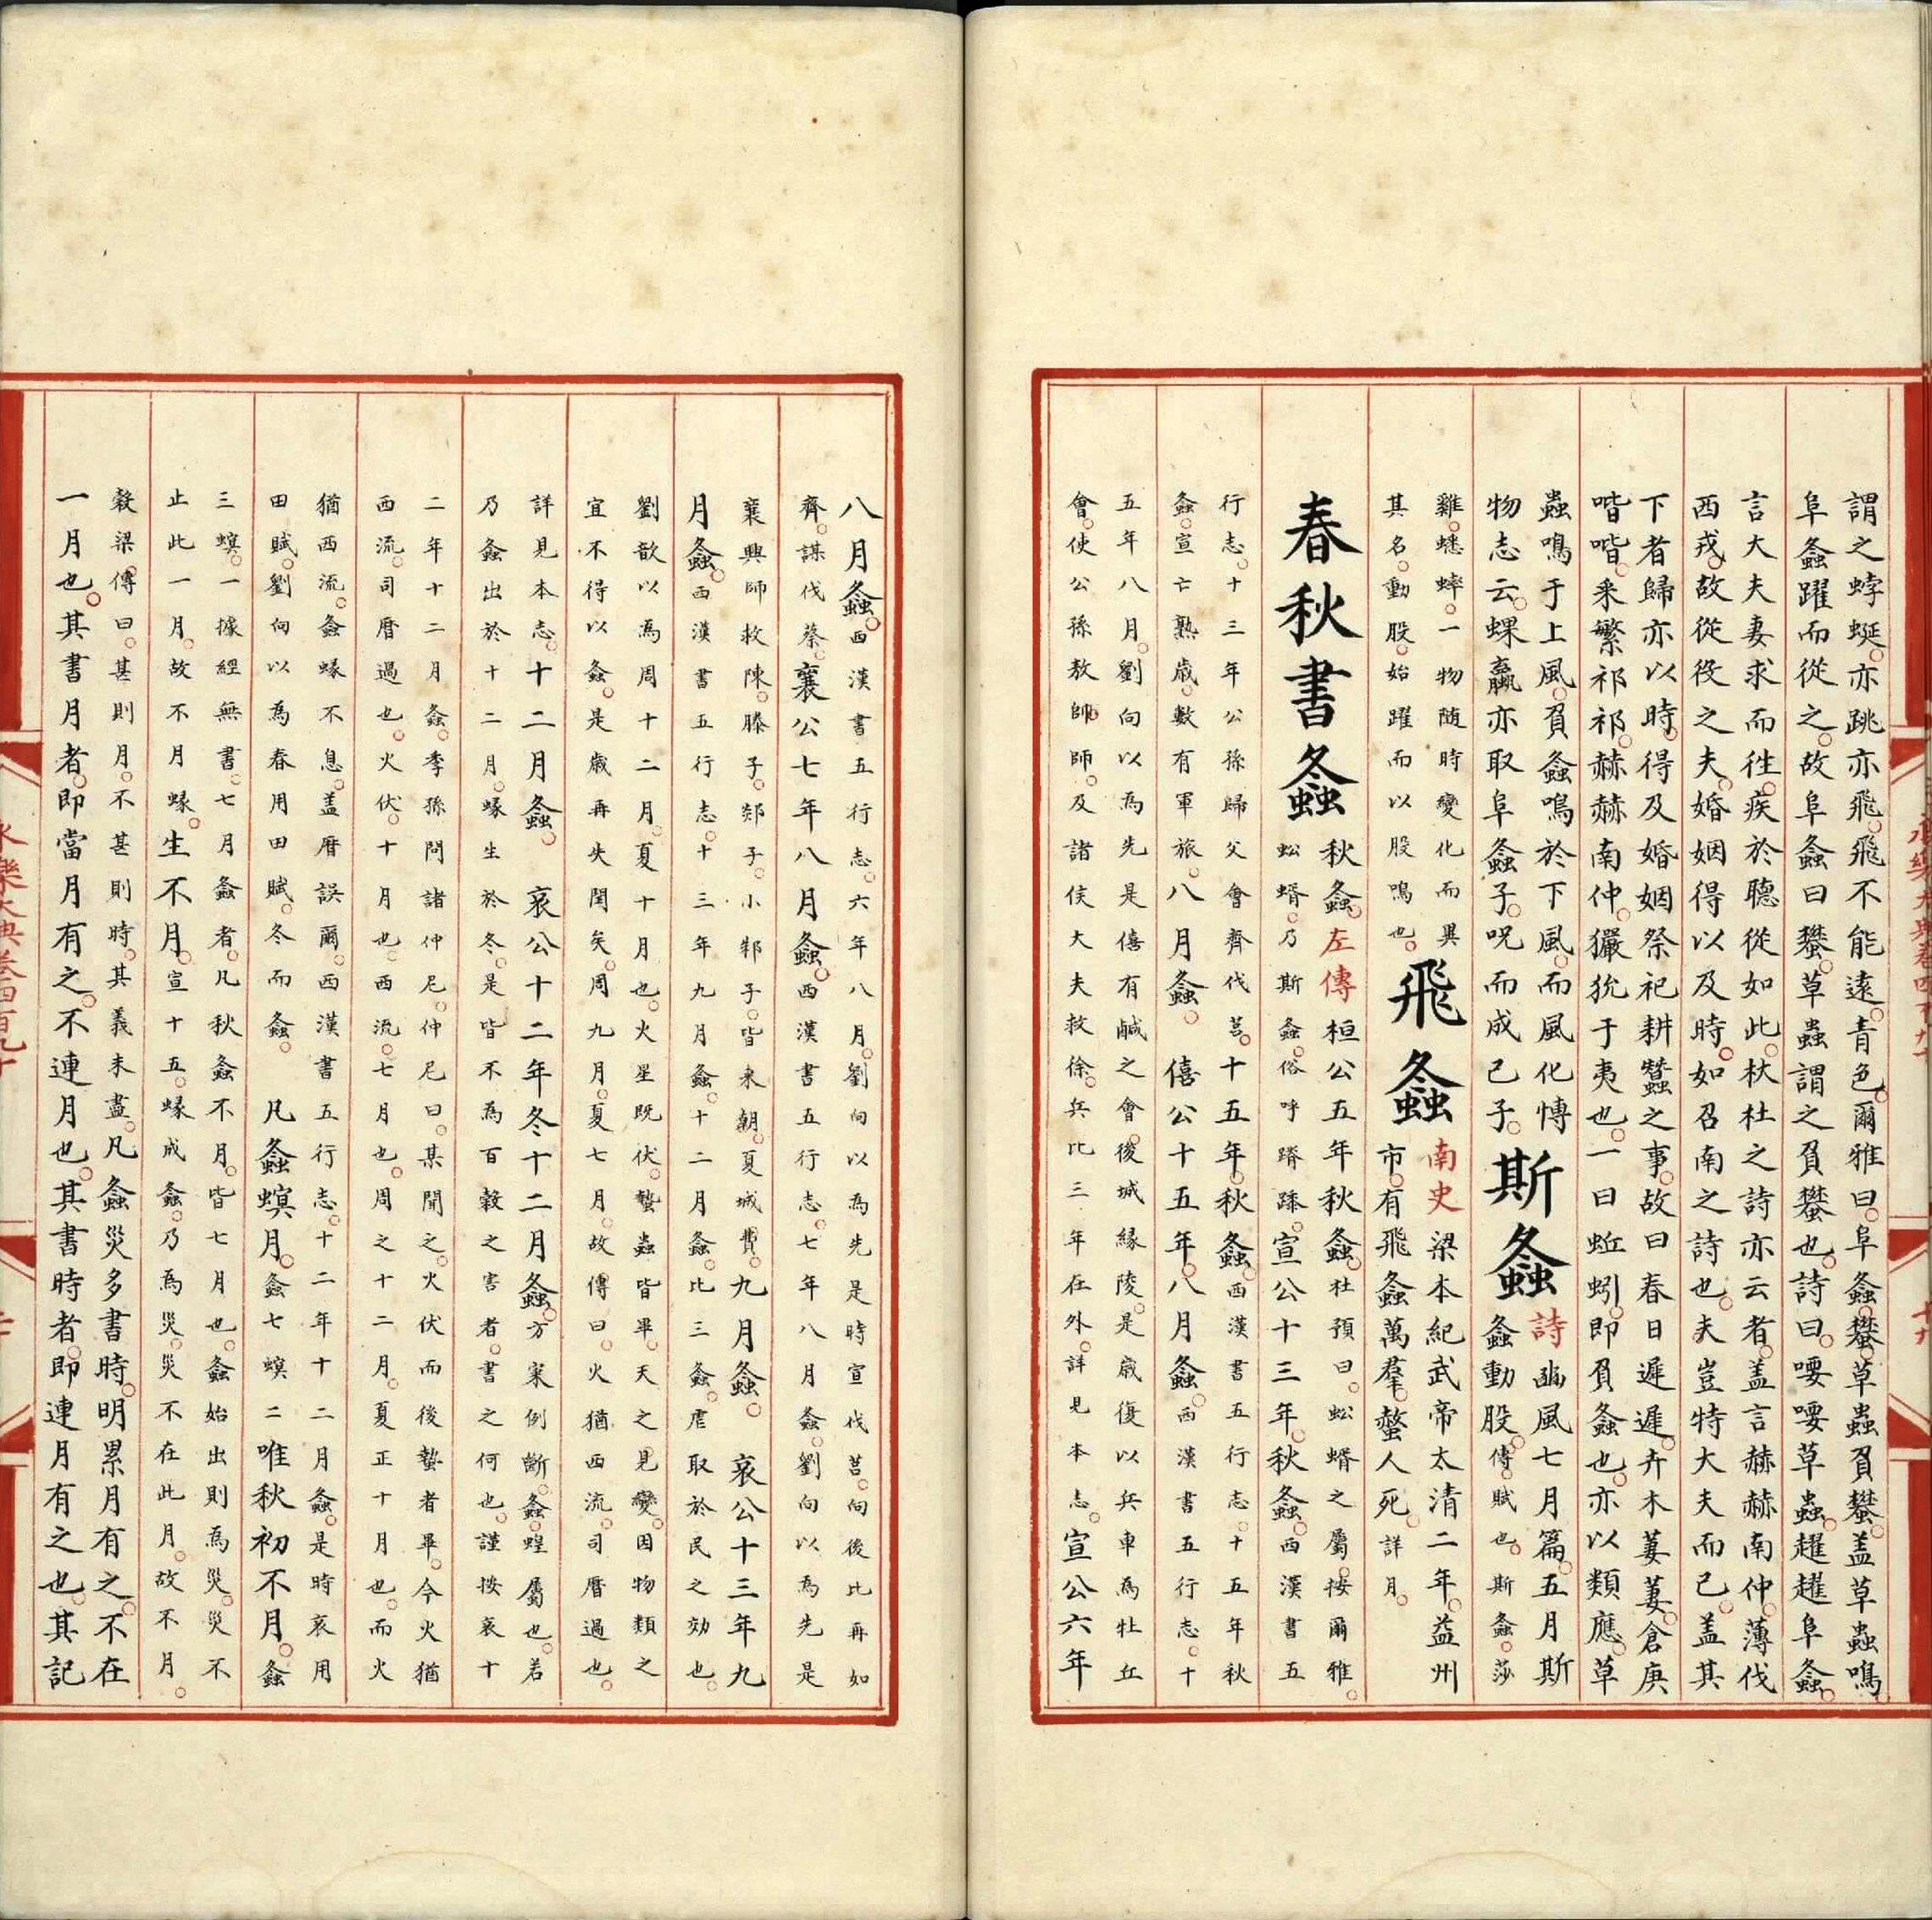 謂之蜉蜒亦跳亦飛飛不能遠青色爾雅曰阜螽蠜草蟲負蠜盖草蟲鳴
阜螽躍而從之故阜螽曰蠜草蟲謂之負蠜也詩曰喓喓草蟲趯趯阜螽
言大夫妻求而徃疾於聽從如此杕杜之詩亦云者盖言赫赫南仲薄伐
西戎故從役之夫婚姻得以及時如召南之詩也夫豈特大夫而已盖其
下者歸亦以時得及婚姻祭祀耕蠶之事故曰春日遲遲卉木萋萋倉庚
喈喈釆繁祁祁赫赫南仲玁狁于夷也一曰蚯蚓即負螽也亦以類應草
蟲鳴于上風負螽鳴於下風而風化慱
物志云蜾蠃亦取阜螽子呪而成己子
斯螽
詩豳風七月篇五月斯
螽動股傳賦也斯螽莎
雞蟋蟀一物随時變化而異
其名動股始躍而以股鳴也
飛螽
南史梁本紀武帝太清二年益州
市有飛螽萬羣螫人死詳月
春秋書螽
秋螽左傳桓公五年秋螽杜預曰蚣蝑之屬按爾雅
蚣蝑乃斯螽俗呼蹐蹖宣公十三年秋螽西漢書五
行志十三年公孫歸父會齊伐莒十五年秋螽西漢書五行志十五年秋
螽宣亡熟歲數有軍旅八月螽 僖公十五年八月螽西漢書五行志十
五年八月劉向以為先是僖有鹹之會後城緣陵是歲復以兵車為牡丘
會使公孫敖帥師及諸侯大夫救徐兵比三年在外詳見本志宣公六年
八月螽西漢書五行志六年八月劉向以為先是時宣伐莒向後比再如
齊謀伐蔡襄公七年八月螽西漢書五行志七年八月螽劉向以為先是
襄興師救陳滕子郯子小邾子皆来朝夏城費九月螽 哀公十三年九
月螽西漢書五行志十三年九月螽十二月螽比三螽虐取於民之効也
劉歆以為周十二月夏十月也火星既伏蟄蟲皆畢天之見變因物類之
宜不得以螽是歲再失閏矣周九月夏七月故傳曰火猶西流司曆過也
詳見本志十二月螽 哀公十二年冬十二月螽方寀例斷螽蝗屬也若
乃螽出於十二月蝝生於冬是皆不為百穀之害者書之何也謹按哀十
二年十二月螽季孫問諸仲尼仲尼曰某聞之火伏而後蟄者畢今火猶
西流司曆過也火伏十月也西流七月也周之十二月夏正十月也而火
猶西流螽蝝不息盖曆誤爾西漢書五行志十二年十二月螽是時哀用
田賦劉向以為春用田賦冬而螽 凡螽螟月螽七螟二唯秋初不月螽
三螟一據經無書七月螽者凡秋螽不月皆七月也螽始出則為災災不
止此一月故不月蝝生不月宣十五蝝成螽乃為災災不在此月故不月
穀梁傳曰甚則月不甚則時其義未盡凡螽災多書時明累月有之不在
一月也其書月者即當月有之不連月也其書時者即連月有之也其記